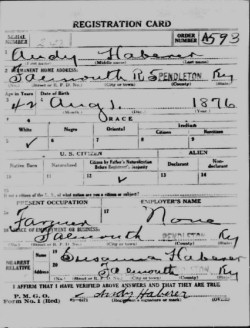 REGISTRATION CARD
SERIAL NUMBER
ORDER NUMBER A593
Andy Haberer
(First name) (Middle name) (Last name)
PERMANENT HOME ADDRESS:
Falmouth R. PENDLETON Ky
Age in Years Date of Birth
42 Aug 1 1876
RACE
White Negro Oriental Indian
Citizen Noncitizen
U. S. CITIZEN ALIEN
Native Born Naturalized Citizen by Father's Naturalization Before Registrant's Majority Declarant Non-declarant
If not a citizen of the U. S., of what nation are you a citizen or subject?
PRESENT OCCUPATION EMPLOYER'S NAME
Farmer None
PLACE OF EMPLOYMENT OR BUSINESS:
Falmouth PENDLETON Ky
NEAREST RELATIVE
Name Susanna Haberer
Address Falmouth Ky
I AFFIRM THAT I HAVE VERIFIED ABOVE ANSWERS AND THAT THEY ARE TRUE
P. M. G. O.
Form No. 1 (Red)
Andy Haberer
(Registrant's signature or mark)